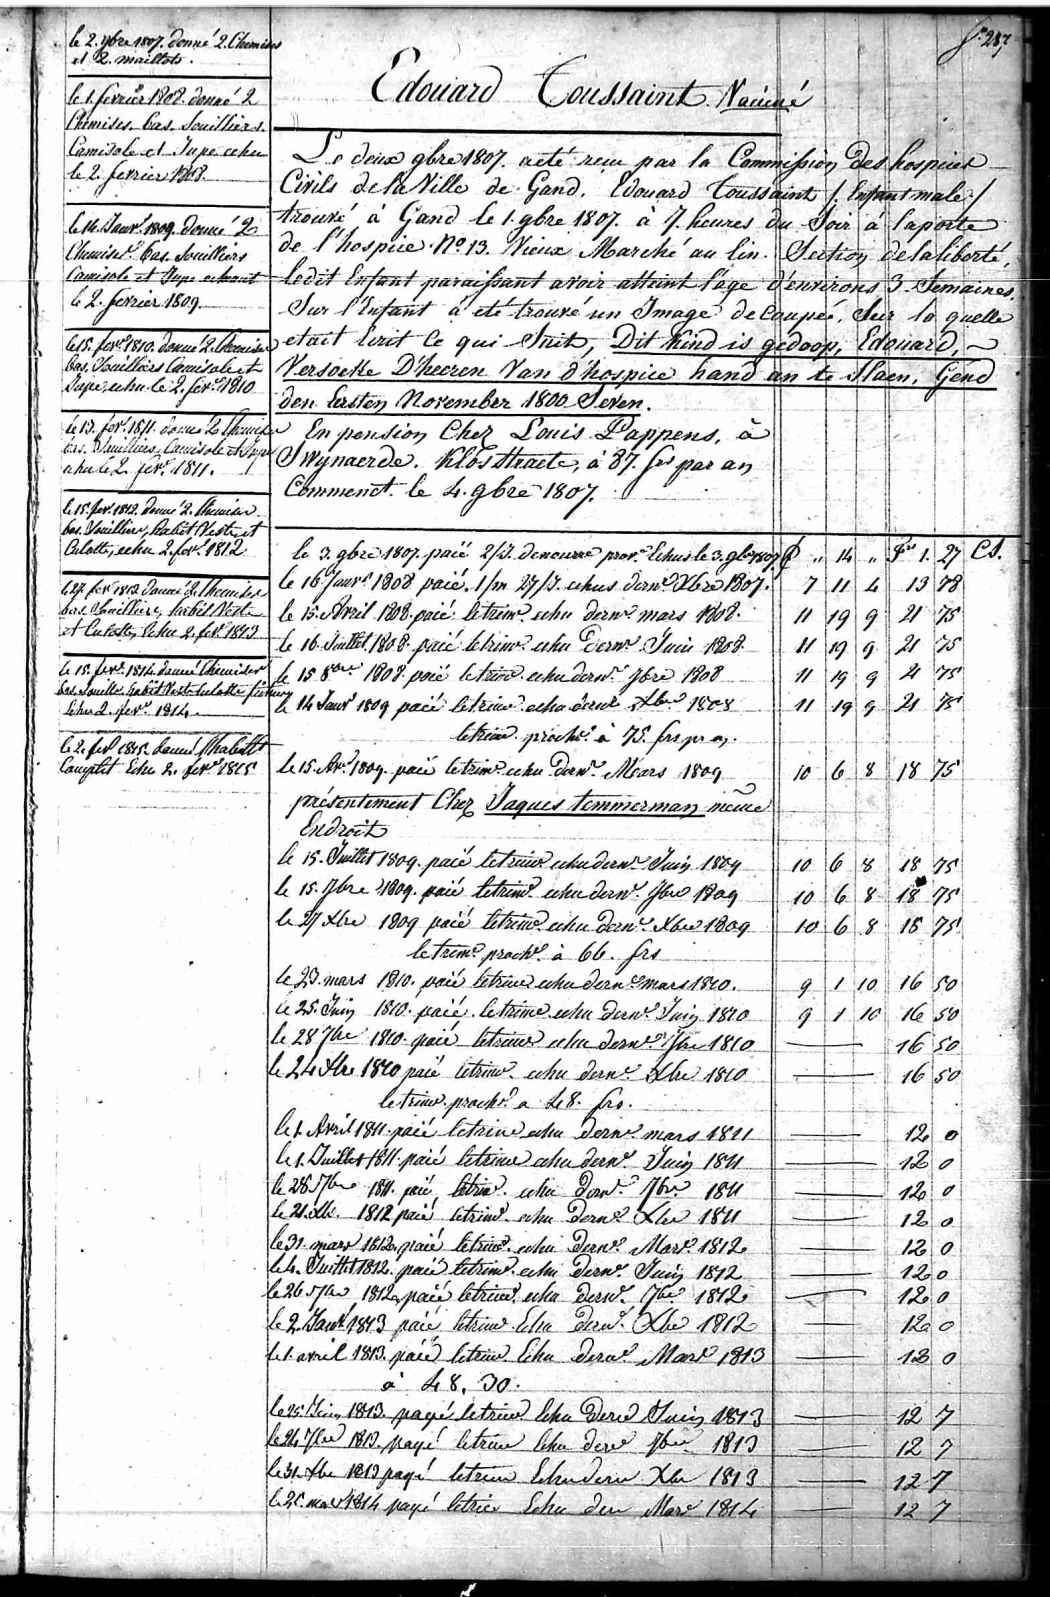 fo 287
Edouard Toussaint Vacciné
le 2. 9bre 1807. donné 2. Chemises
et 2. maillots.
le 1. fevrier 1808. donné 2
Chemises. bas. Souilliers.
Camisole et Jupe echu
le 2. fevrier 1808.
le 14. Janvr. 1809. donné 2
Chemises. bas. Souilliers
Camisole et Jupe echeant
le 2. fevrier 1809.
le 15. fevr. 1810. donné 2. Chemises
bas. Souilliers Camisole et
Jupe, echu le 2. fevr. 1810
le 13. fevr. 1811. donné 2 Chemises
bas. Souilliers, Camisole et Jupe
echu le 2. fevr. 1811.
le 15. fevr. 1812. donné 2. Chemises
bas. Souilliers, habit Veste et
Culotte, echu 2. fevr. 1812
le 27. fevr 1813 donné 2 Chemises
bas. Souilliers, habit Veste
et Culotte, Echu 2. fevr. 1813
le 15. fevr. 1814. donné Chemises
bas. Souilliers habit Veste Culotte
Echu 2. fevr. 1814.
le 2. fevr 1815. donné
Complet Echu 2. fevr. 1815
Le deux 9bre 1807. a eté reçu par la Commission des hospices
Civils de la Ville de Gand. Edouard Toussaint /: Enfant male :/
trouvé à Gand le 1. 9bre 1807. à 7. heures du Soir à la porte
de l'hospice No. 13. Vieux Marché au lin. Section de la liberté,
ledit Enfant paraissant avoir atteint l'age d'environs 3. Semaines.
Sur l'Enfant a eté trouvé un Image decoupée. Sur la quelle
etait Ecrit Ce qui Suit, Dit Kind is gedoop, Edouard, ~
Versoeke D'heeren Van d'hospice hand an te Slaen. Gend
den Eersten November 1800 Seven.
En pension Chez Louis Pappens, à
Swynaerde. Klosttraete, à 87. frs par an
Commenct. le 4. 9bre 1807.
le 3. 9bre 1807. paié 2/3. denourre provr. Echus le 3. 9bre 1807 £ " 14 " Frs 1. 27 CS.
le 16 Janvr. 1808 paié. 1/m 27/J. echus dernr. Xbre 1807. 7 11 4 13 78
le 15. Avril 1808. paié letrimr. echu dernr. mars 1808. 11 19 9 21 75
le 16. Juillet 1808. paié letrimr. echu dernr. Juin 1808. 11 19 9 21 75
le 15 8bre 1808. paié letrimr. echu dernr. 7bre 1808 11 19 9 21 75
le 14 Janvr 1809 paié letrimr. echu dernr Xbre 1808 11 19 9 21 75
letrimr. prochr. à 75. frs pr an.
le 15. Avr. 1809. paié letrimr. echu dernr. Mars 1809 10 6 8 18 75
présentement Chez Jaques temmerman même
Endroit
le 15. Juillet 1809. paié letrimr echu dernr. Juin 1809 10 6 8 18 75
le 15. 7bre 1809. paié letrimr. echu dernr. 7bre 1809 10 6 8 18 75
le 27 Xbre 1809 paié letrimr. echu dernr. Xbre 1809 10 6 8 18 75
letrimr. prochr. à 66. frs
le 23. mars 1810. paié letrimr echu dernr. mars 1810. 9 1 10 16 50
le 25. Juin 1810. paié. letrimr echu dernr. Juin 1810 9 1 10 16 50
le 28 7bre 1810. paié letrimr echu dernr. 7bre 1810 — 16 50
le 24 Xbre 1810 paié letrimr. echu dernr. Xbre 1810 — 16 50
letrimr. prochr. a 48. frs.
le 1. Avril 1811. paié letrimr echu dernr. mars 1811 — 12 0
le 1. Juillet 1811. paié letrimr echu dernr. Juin 1811 — 12 0
le 28 7bre 1811. paié, letrimr. echu dernr. 7bre 1811 — 12 0
le 21. Xbr. 1812 paié letrimr. echu dernr. Xbre 1811 — 12 0
le 31. mars 1812. paié letrimr. echu dernr. Mars. 1812 — 12 0
le 4. Juillet 1812. paié letrimr. echu dernr. Juin 1812 — 12 0
le 26 7bre 1812, paié letrimr. echu dernr. 7bre 1812 — 12 0
le 2 Janvr 1813 paié letrimr Echu dernr. Xbre 1812 — 12 0
le 1. avril 1813. paié letrimr Echu dernr. Mars 1813 — 12 0
à 48. 30.
le 25. Juin 1813. payé letrimr Echu Derr Juin 1813 — 12 7
le 24 7bre 1813. payé letrimr Echu derr 7bre 1813 — 12 7
le 31. Xbre 1813 payé letrimr Echu derr Xbre 1813 — 12 7
le 25. mars 1814 payé letrimr Echu der Mars 1814 — 12 7